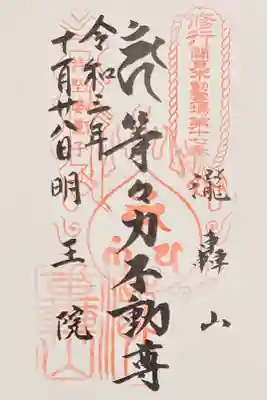 修行
関東不動霊場第十七番
瀧轟山
等々力不動尊
令和三年
十一月廿八日明王院